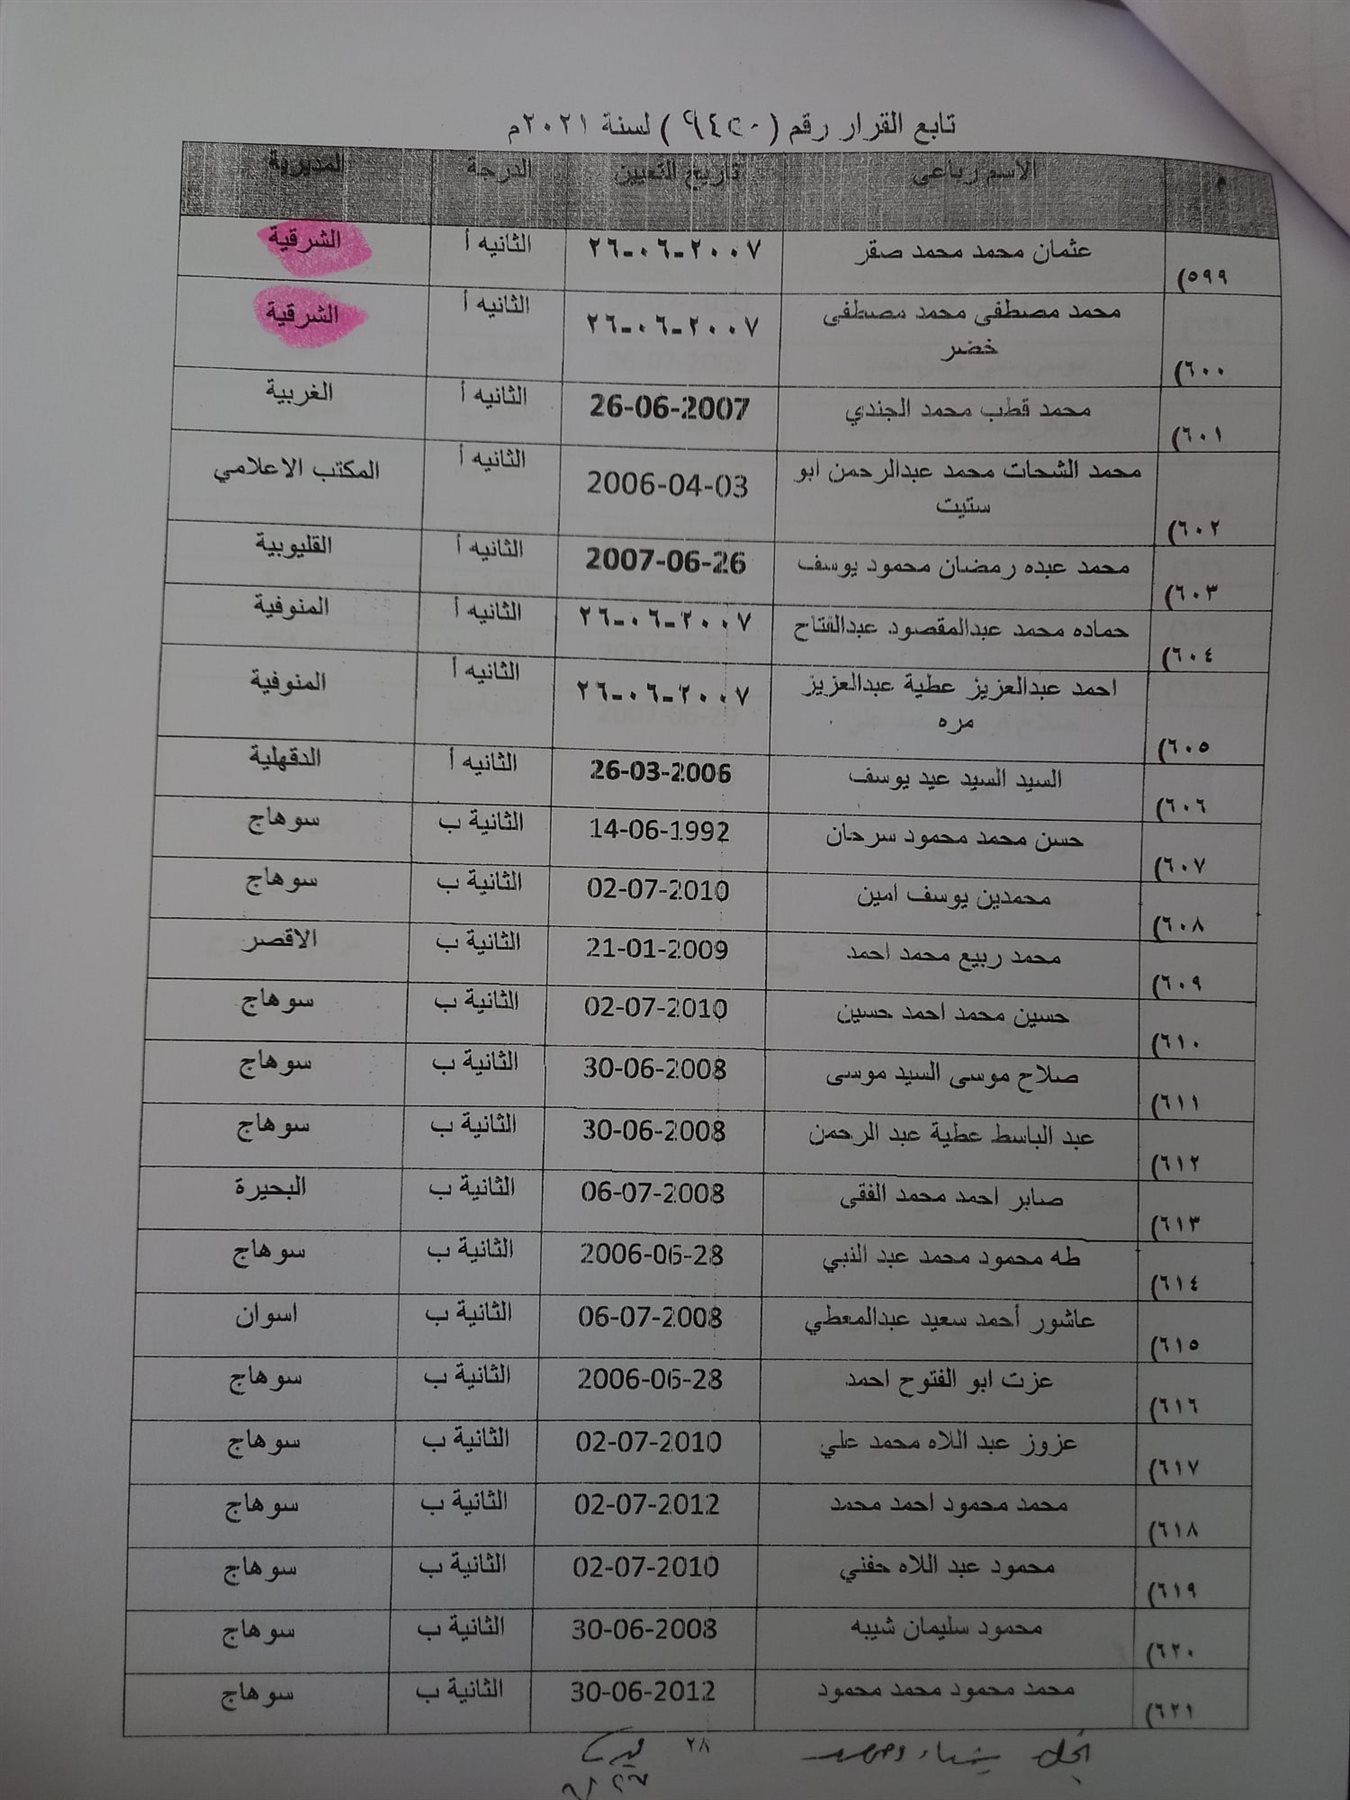 تابع القرار رقم ( ٩٤٢٠ ) لسنة ٢٠٢١م
م الاسم رباعى تاريخ التعيين الدرجة المديرية
٥٩٩) عثمان محمد محمد صقر ٢٦-٠٦-٢٠٠٧ الثانيه أ الشرقية
٦٠٠) محمد مصطفى محمد مصطفى ٢٦-٠٦-٢٠٠٧ الثانيه أ الشرقية
خضر
٦٠١) محمد قطب محمد الجندي 26-06-2007 الثانيه أ الغربية
٦٠٢) محمد الشحات محمد عبدالرحمن ابو 2006-04-03 الثانيه أ المكتب الاعلامي
ستيت
٦٠٣) محمد عبده رمضان محمود يوسف 2007-06-26 الثانيه أ القليوبية
٦٠٤) حماده محمد عبدالمقصود عبدالفتاح ٢٦-٠٦-٢٠٠٧ الثانيه أ المنوفية
٦٠٥) احمد عبدالعزيز عطية عبدالعزيز ٢٦-٠٦-٢٠٠٧ الثانيه أ المنوفية
مره
٦٠٦) السيد السيد عيد يوسف 26-03-2006 الثانيه أ الدقهلية
٦٠٧) حسن محمد محمود سرحان 14-06-1992 الثانية ب سوهاج
٦٠٨) محمدين يوسف امين 02-07-2010 الثانية ب سوهاج
٦٠٩) محمد ربيع محمد احمد 21-01-2009 الثانية ب الاقصر
٦١٠) حسين محمد احمد حسين 02-07-2010 الثانية ب سوهاج
٦١١) صلاح موسى السيد موسى 30-06-2008 الثانية ب سوهاج
٦١٢) عبد الباسط عطية عبد الرحمن 30-06-2008 الثانية ب سوهاج
٦١٣) صابر احمد محمد الفقى 06-07-2008 الثانية ب البحيرة
٦١٤) طه محمود محمد عبد النبي 2006-06-28 الثانية ب سوهاج
٦١٥) عاشور أحمد سعيد عبدالمعطي 06-07-2008 الثانية ب اسوان
٦١٦) عزت ابو الفتوح احمد 2006-06-28 الثانية ب سوهاج
٦١٧) عزوز عبد اللاه محمد علي 02-07-2010 الثانية ب سوهاج
٦١٨) محمد محمود احمد محمد 02-07-2012 الثانية ب سوهاج
٦١٩) محمود عبد اللاه حفني 02-07-2010 الثانية ب سوهاج
٦٢٠) محمود سليمان شيبه 30-06-2008 الثانية ب سوهاج
٦٢١) محمد محمود محمد محمود 30-06-2012 الثانية ب سوهاج
٢٨